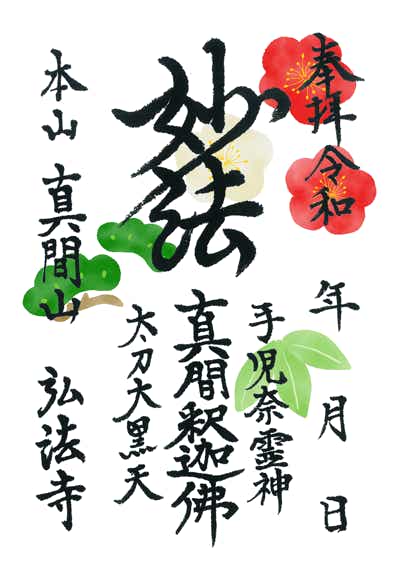 奉拝令和 年 月 日
妙法
手児奈霊神
真間釈迦佛
太刀大黒天
本山 真間山 弘法寺